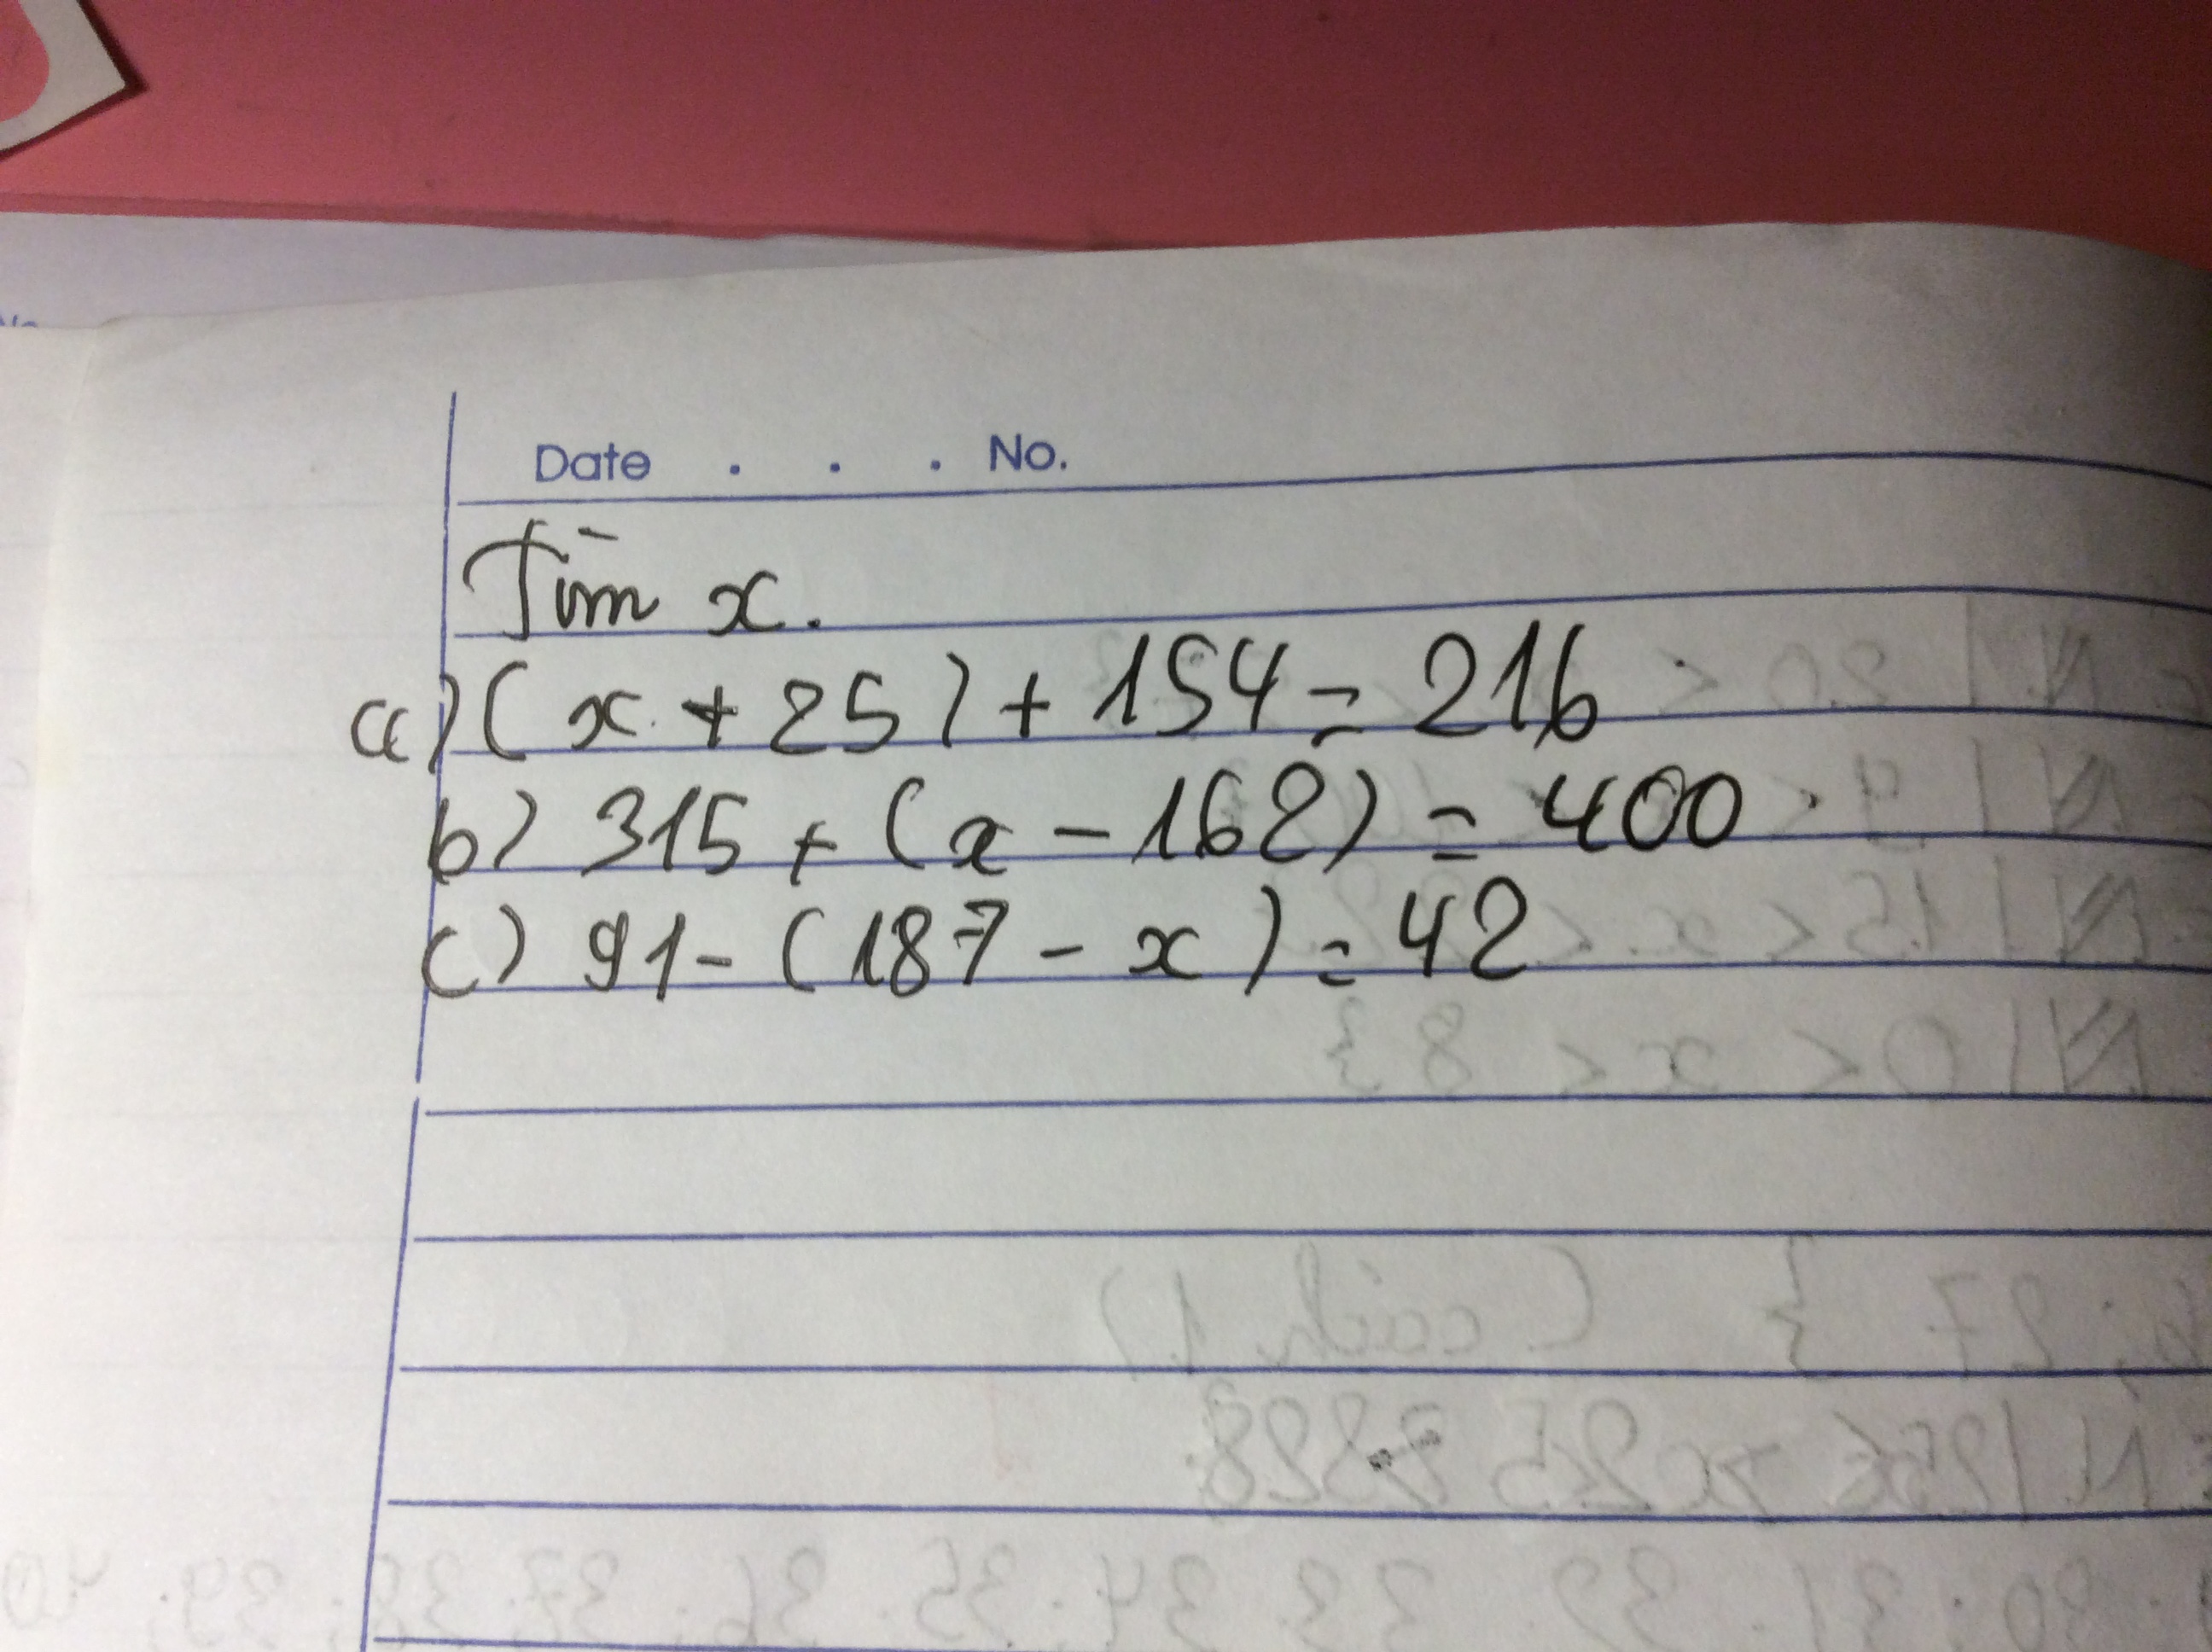 Date . . . No.
Tìm x.
a) (x + 25) + 154 = 216
b) 315 + (x - 162) = 400
c) 91 - (187 - x) = 42